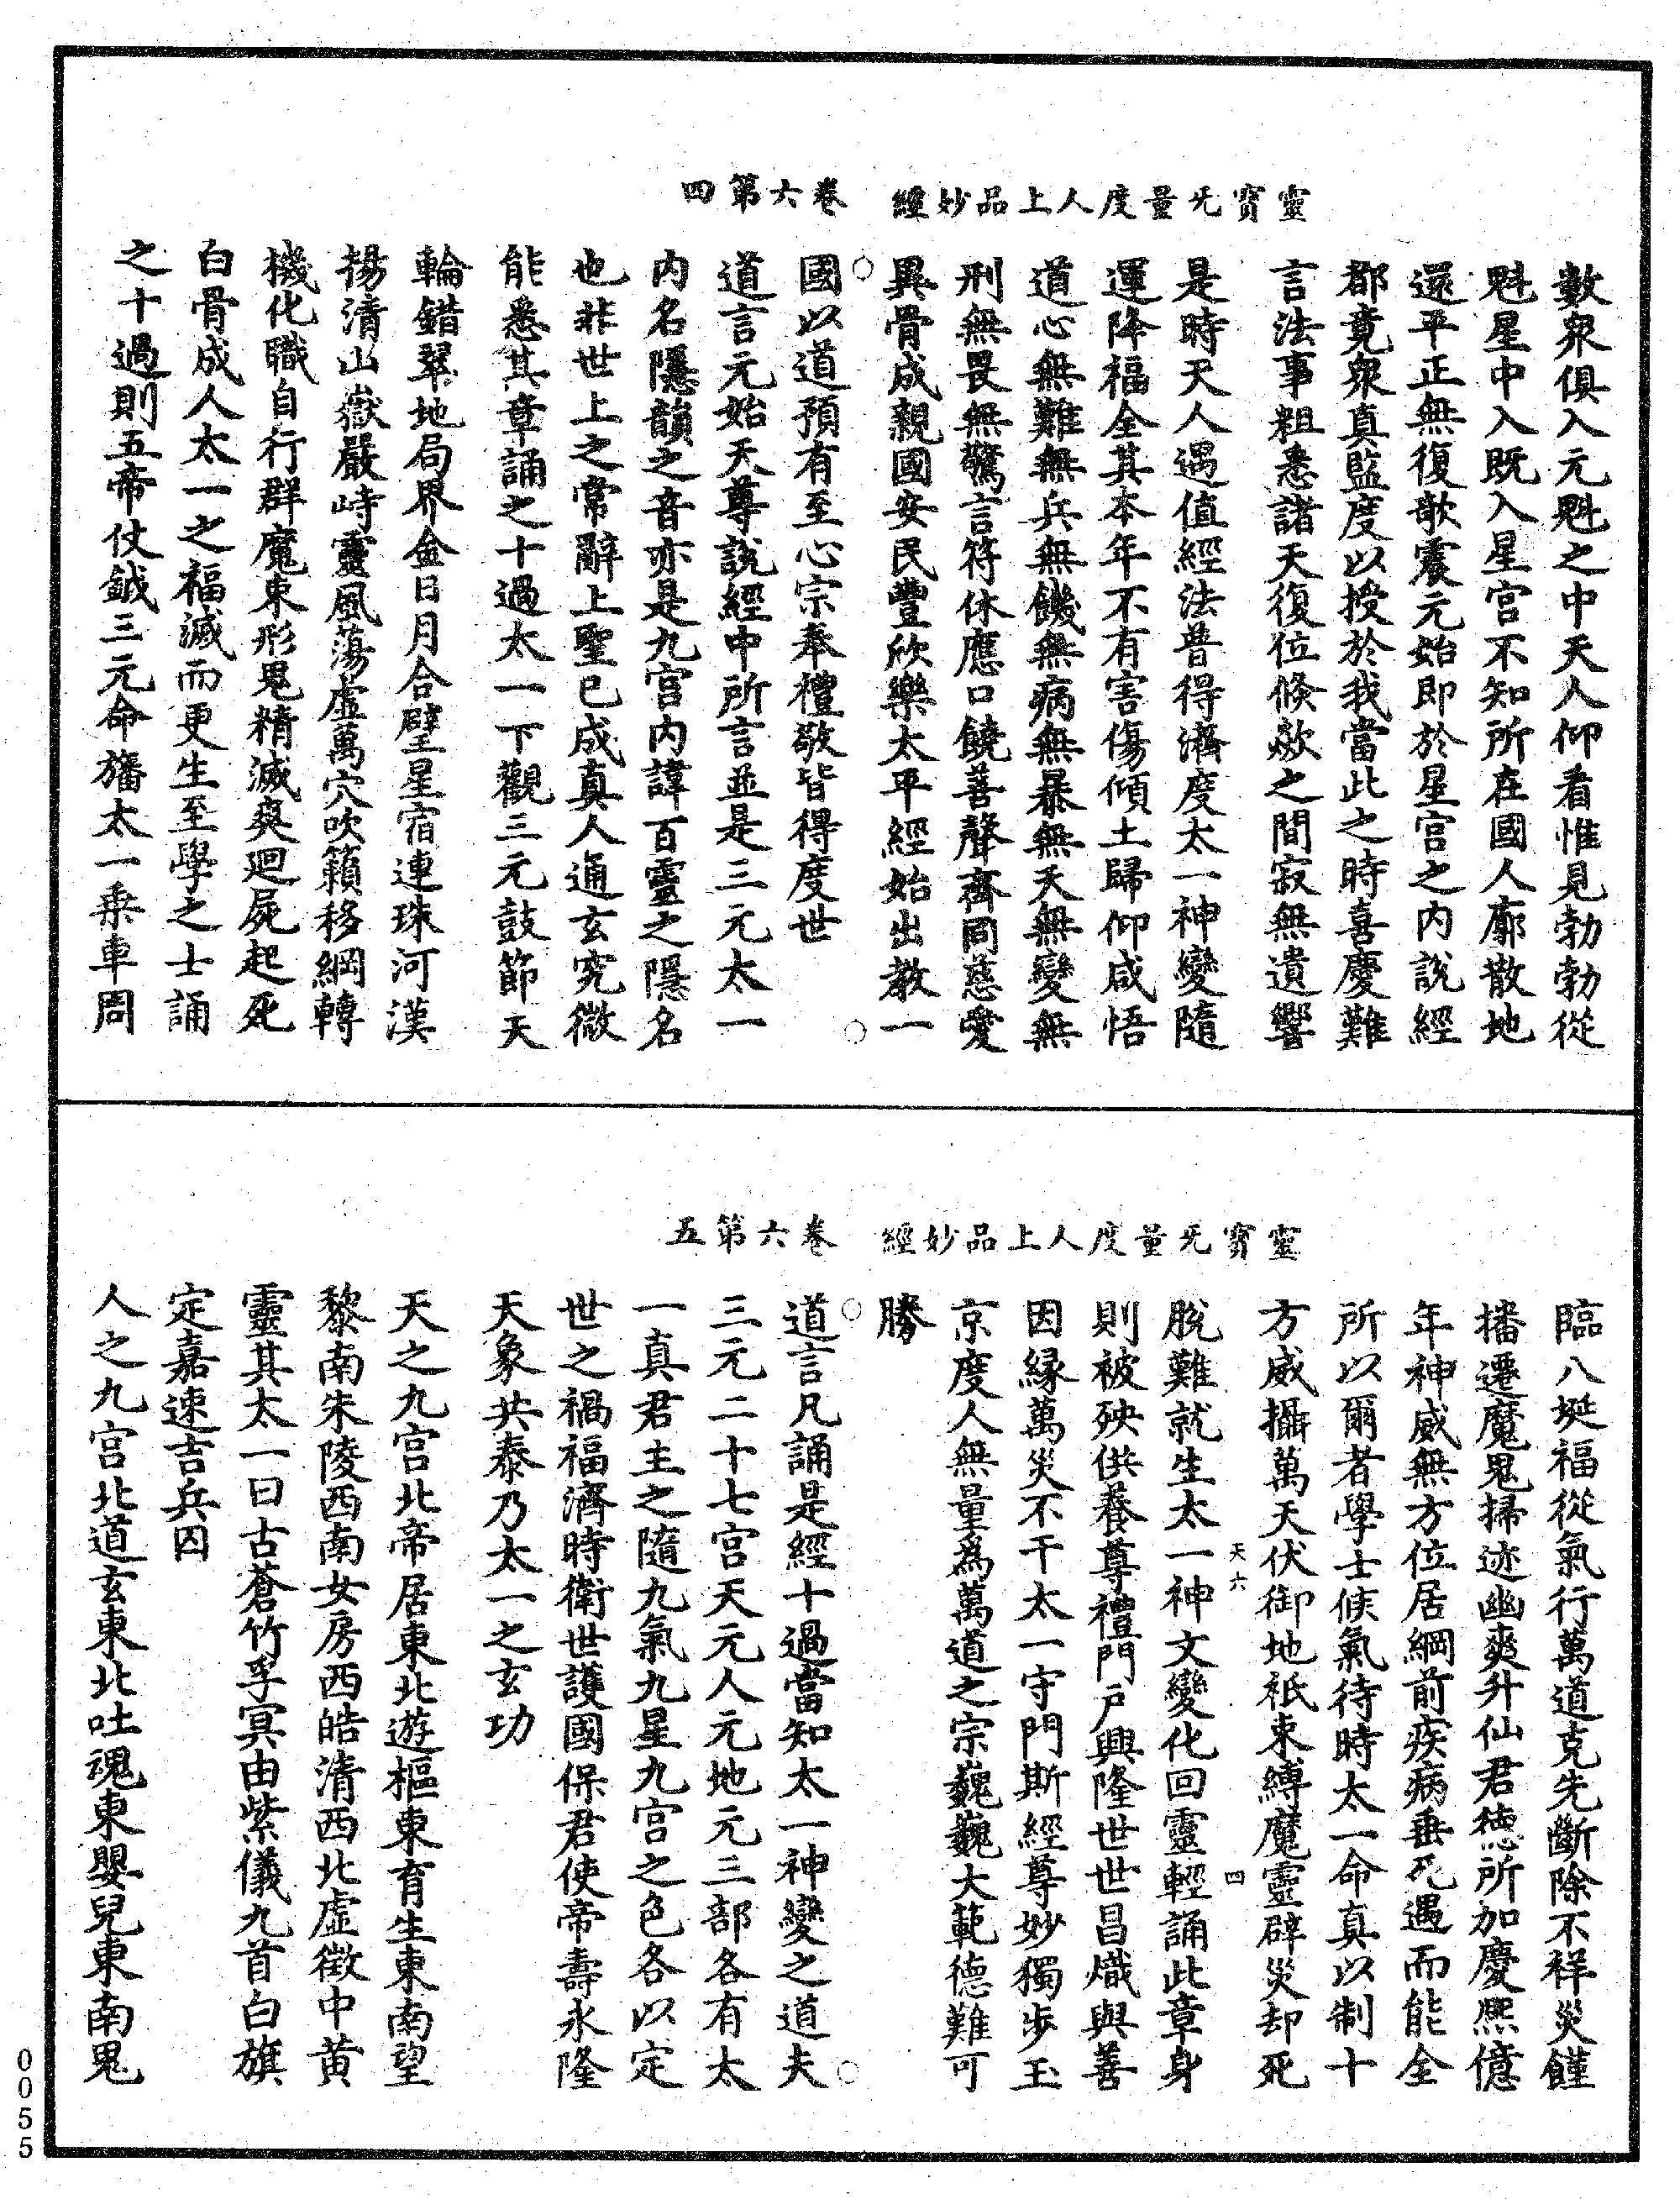 靈寶旡量度人上品妙經　卷六第四
數衆俱入元魁之中天人仰看惟見勃勃從
魁星中入既入星宫不知所在國人廓散地
還平正無復歆震元始即於星宫之内說經
都竟衆真監度以授於我當此之時喜慶難
言法事粗悉諸天復位倐歘之間寂無遺響
是時天人遇值經法普得濟度太一神變隨
運降福全其本年不有害傷傾土歸仰咸悟
道心無難無兵無饑無病無暴無夭無變無
刑無畏無驚言符休應口饒善聲齊同慈愛
異骨成親國安民豐欣樂太平經始出教一
國以道預有至心宗奉禮敬皆得度世
道言元始天尊說經中所言並是三元太一
内名隱韻之音亦是九宫内諱百靈之隱名
也非世上之常辭上聖已成真人通玄究微
能悉其章誦之十過太一下觀三元鼓節天
輪錯翠地局界金日月合璧星宿連珠河漢
揚清山嶽嚴峙靈風蕩虚萬穴吹籟移綱轉
機化職自行群魔束形鬼精滅爽廻屍起死
白骨成人太一之福滅而更生至學之士誦
之十過則五帝仗鉞三元命旛太一乗車周
靈寶旡量度人上品妙經　卷六第五
臨八埏福從氣行萬道克先斷除不祥災饉
播遷魔鬼掃迹幽爽升仙君德所加慶熈億
年神威無方位居綱前疾病垂死遇而能全
所以爾者學士候氣待時太一命真以制十
方威攝萬天伏御地祇束縛魔靈辟災却死
天六　四
脫難就生太一神文變化回靈輕誦此章身
則被殃供養尊禮門戸興隆世世昌熾與善
因緣萬災不干太一守門斯經尊妙獨步玉
京度人無量爲萬道之宗巍巍大範德難可
勝
道言凡誦是經十過當知太一神變之道夫
三元二十七宫天元人元地元三部各有太
一真君主之隨九氣九星九宫之色各以定
世之禍福濟時衛世護國保君使帝壽永隆
天象共泰乃太一之玄功
天之九宫北帝居東北遊樞東育生東南望
黎南朱陵西南女房西皓清西北虚徵中黄
靈其太一曰古蒼竹孚冥由紫儀九首白旗
定嘉速吉兵囚
人之九宫北道玄東北吐魂東嬰兒東南鬼
0055